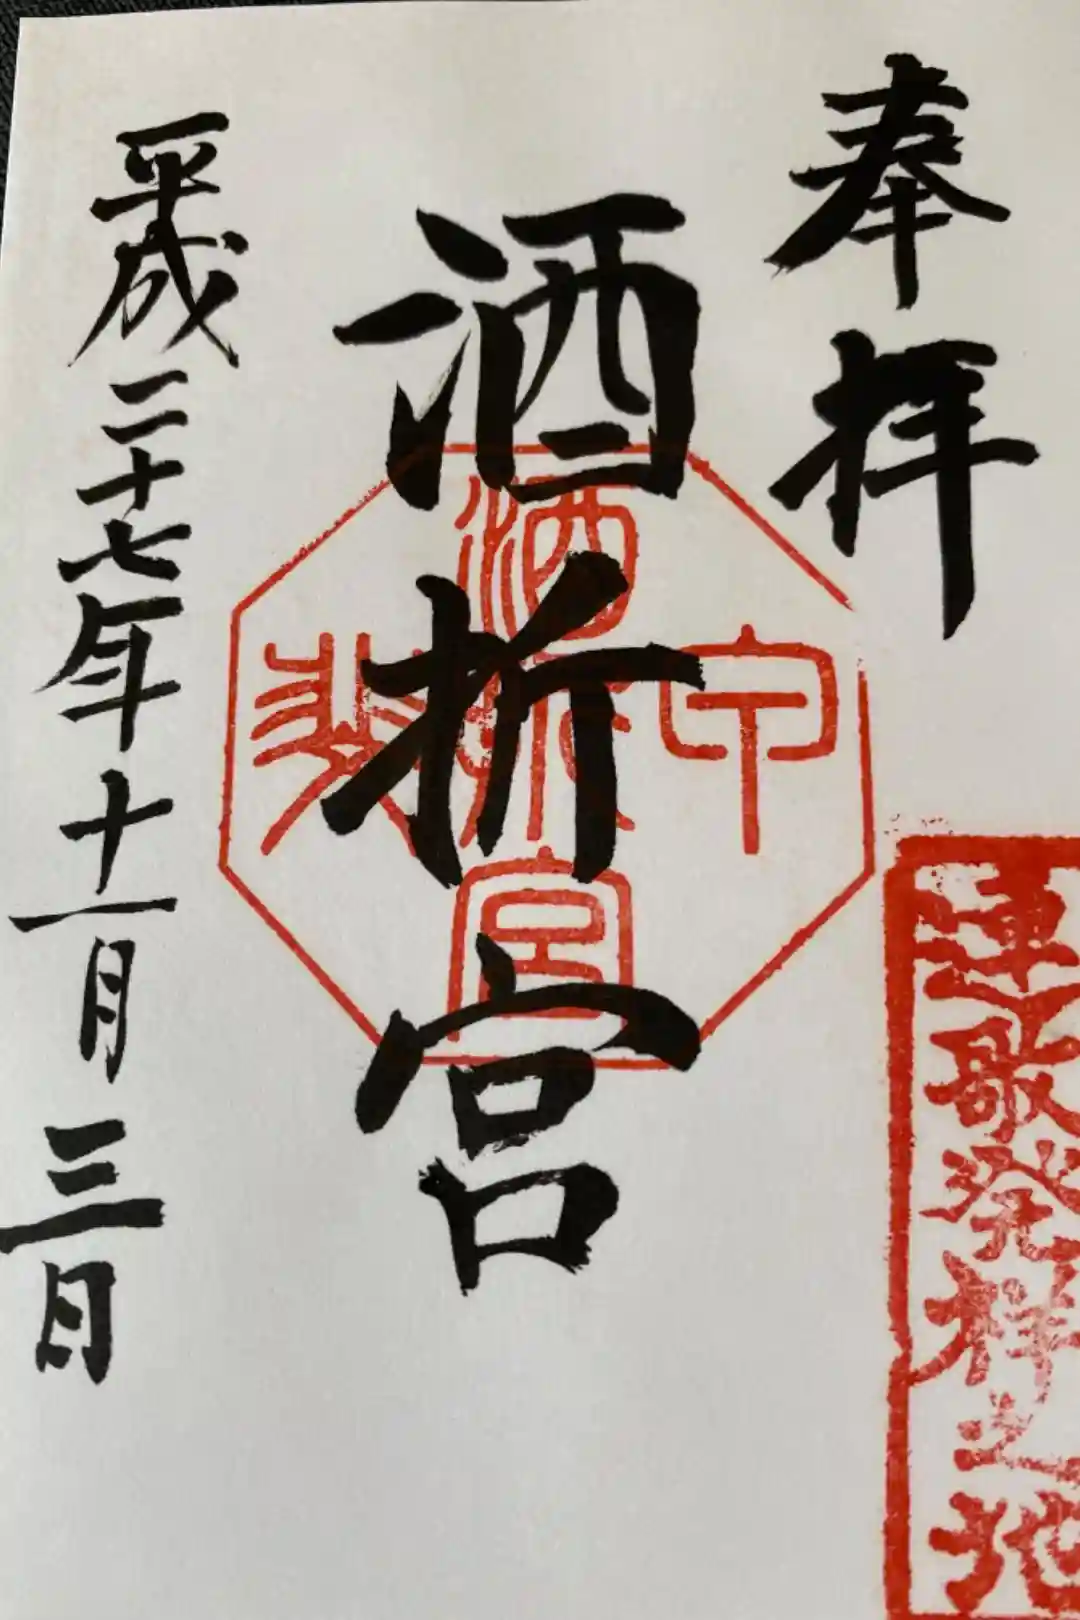 奉拝
連歌発祥之地
酒折宮
甲斐
酒折宮
平成二十七年十一月三日